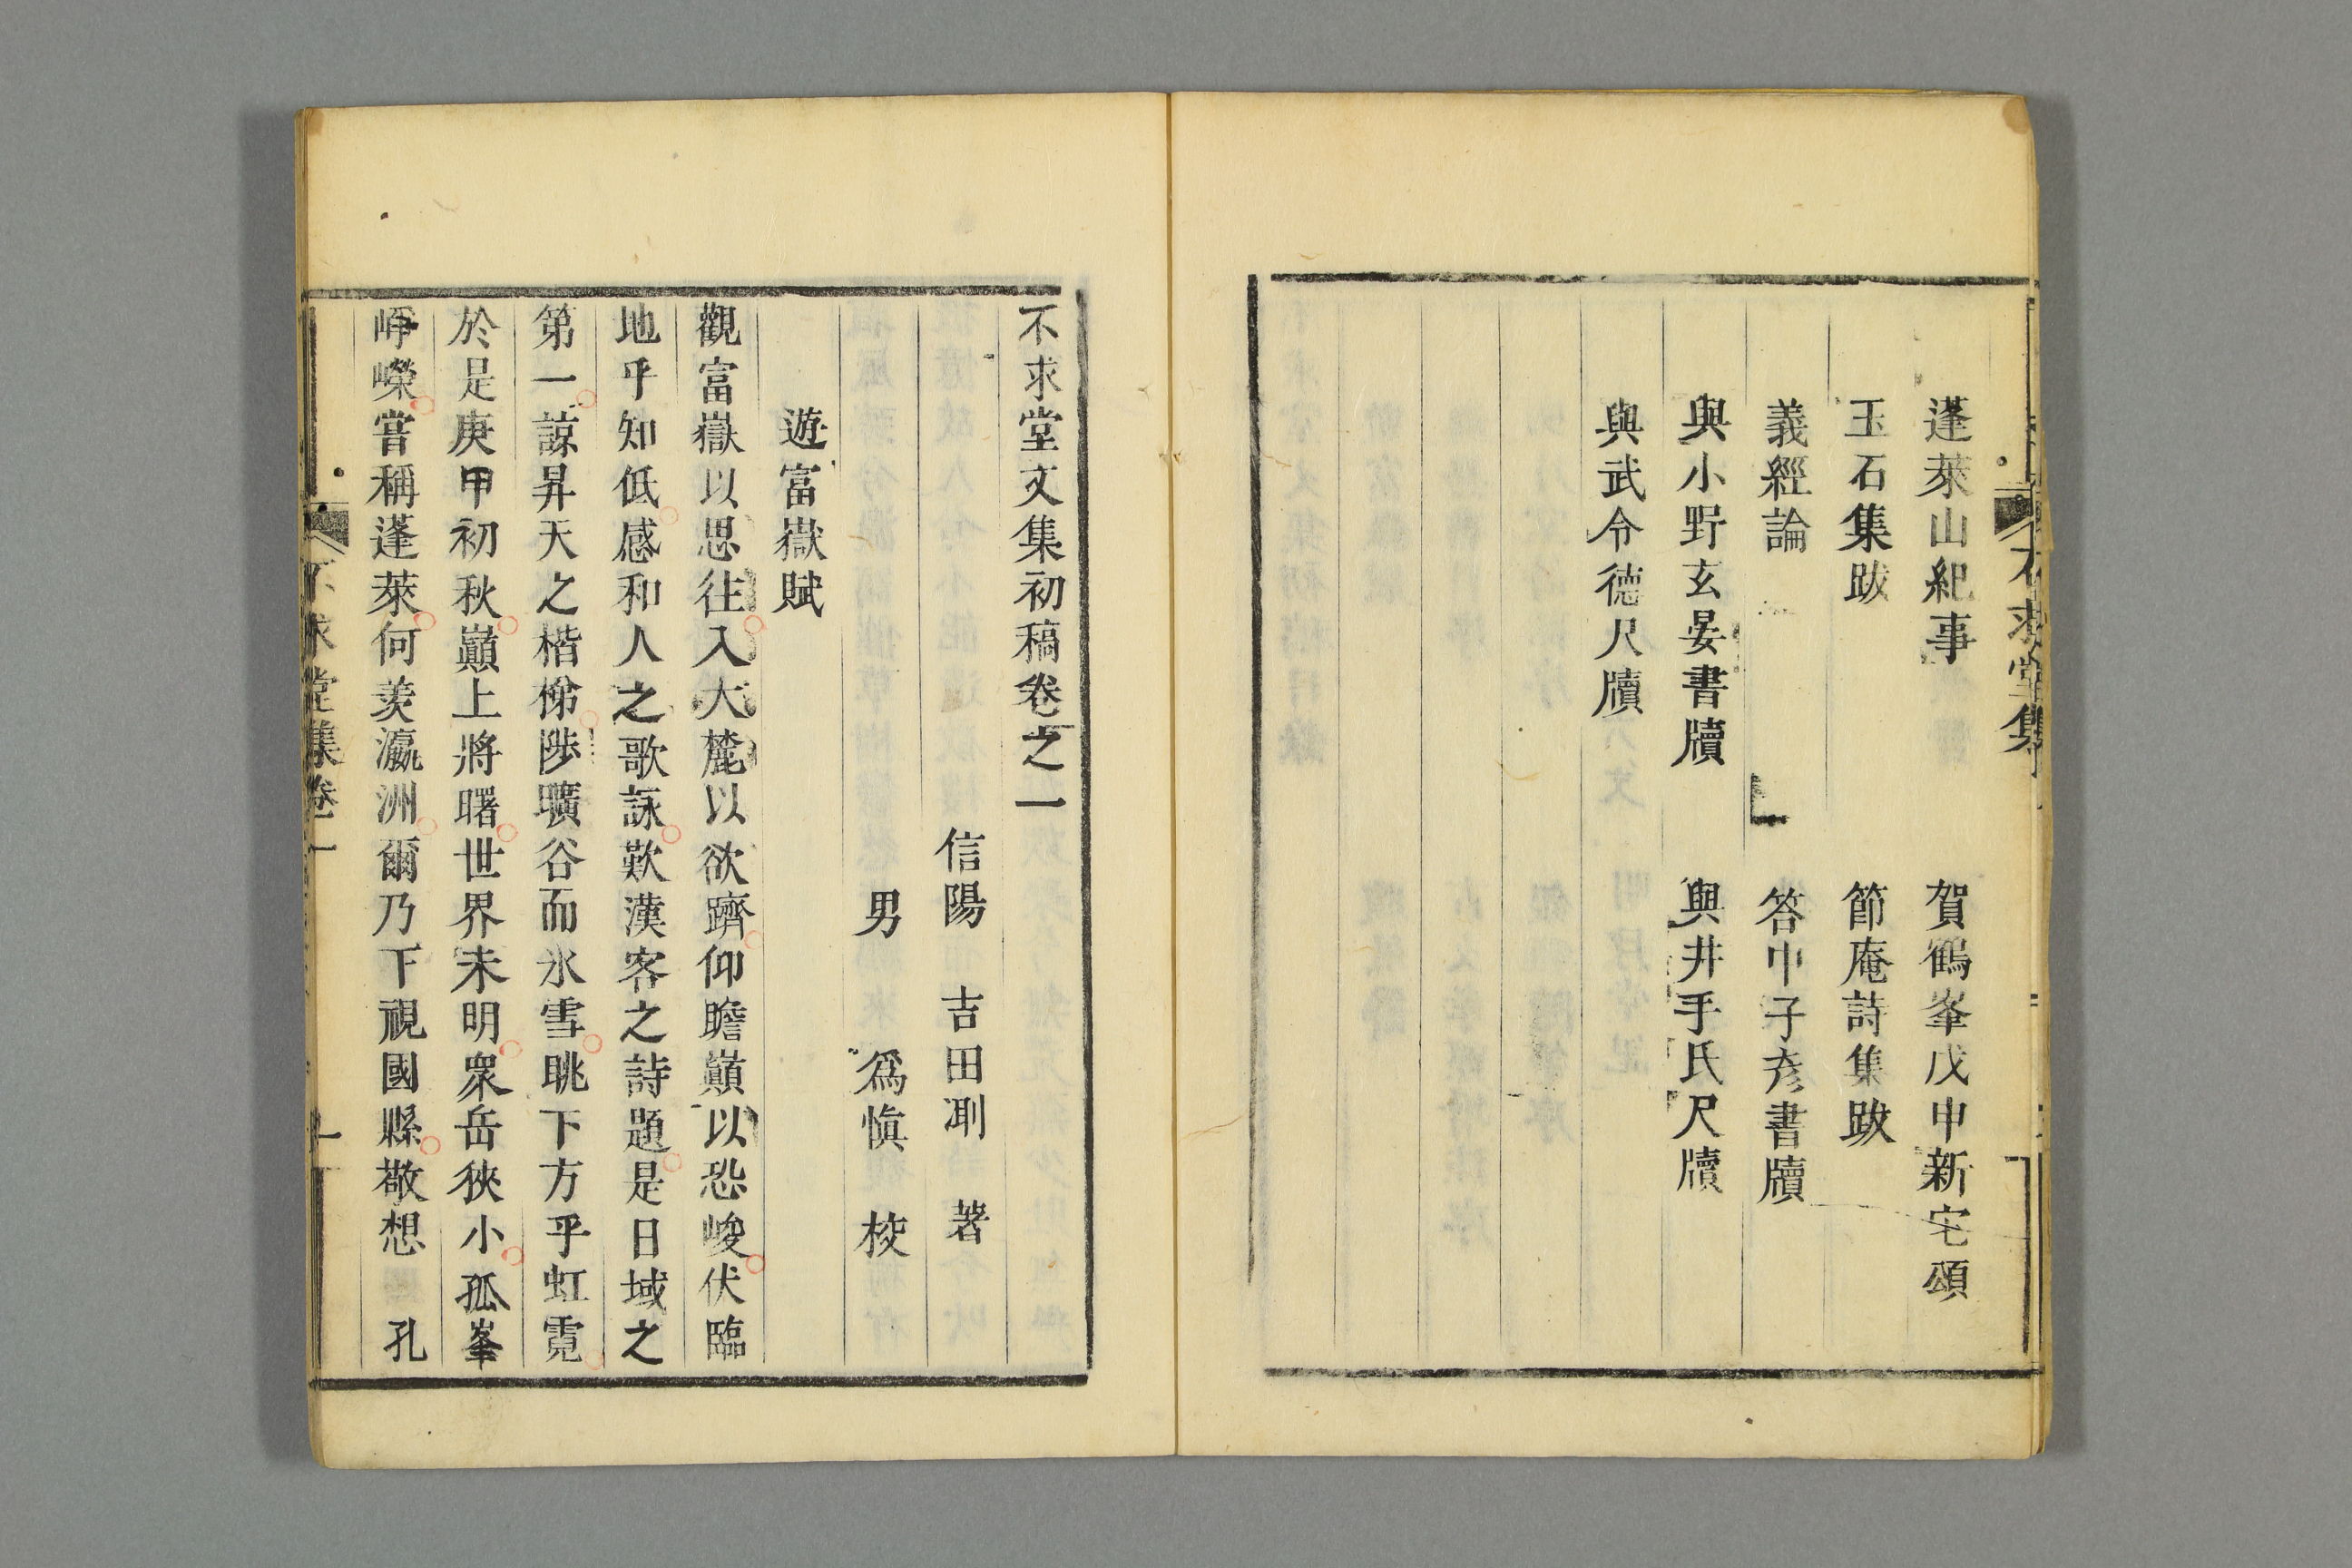 蓬萊山紀事　賀鶴峯戊申新宅頌
玉石集跋　節庵詩集跋
義經論　答巾子彦書牘
與小野玄晏書牘　與井手氏尺牘
與武令德尺牘
不求堂文集初稿卷之一
信陽　吉田　著
男　爲愼　校
遊富嶽賦
觀富嶽以思往入大麓以欲躋仰瞻巔以恐峻伏臨
地乎知低感和人之歌詠歎漢客之詩題是日域之
第一諒昇天之楷梯陟曠谷而氷雪眺下方乎虹霓
於是庚甲初秋巔上將曙世界未明衆岳狹小孤峯
崢嶸嘗稱蓬萊何羨瀛洲爾乃下視國縣敬想　孔
不求堂集卷一　一